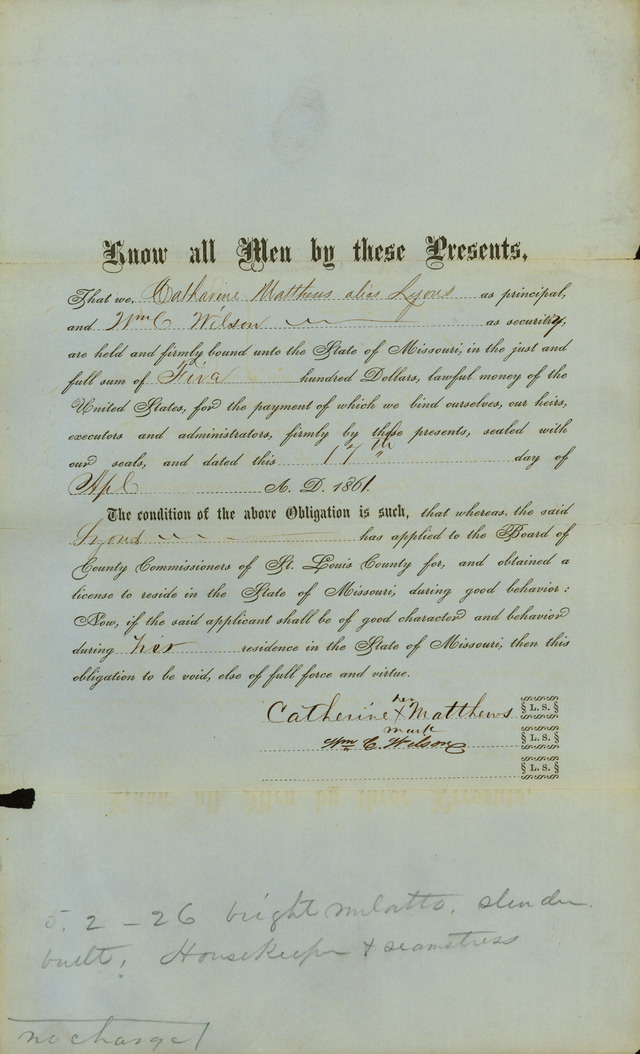 Know all Men by these Presents,
That we, Catharine Matthews alias Lyons as principal,
and Wm C Wilson as security,
are held and firmly bound unto the State of Missouri, in the just and
full sum of Five hundred Dollars, lawful money of the
United States, for the payment of which we bind ourselves, our heirs,
executors and administrators, firmly by these presents, sealed with
our seals, and dated this 17th day of
Apl A. D. 1861.
The condition of the above Obligation is such, that whereas, the said
Lyons has applied to the Board of
County Commissioners of St. Louis County for, and obtained a
license to reside in the State of Missouri, during good behavior:
Now, if the said applicant shall be of good character and behavior
during her residence in the State of Missouri, then this
obligation to be void, else of full force and virtue.
her
Catherine X Matthews L. S.
mark
Wm C. Wilson L. S.
L. S.
5. 2 - 26 bright mulatto, slender
built, Housekeeper & seamstress
no charge